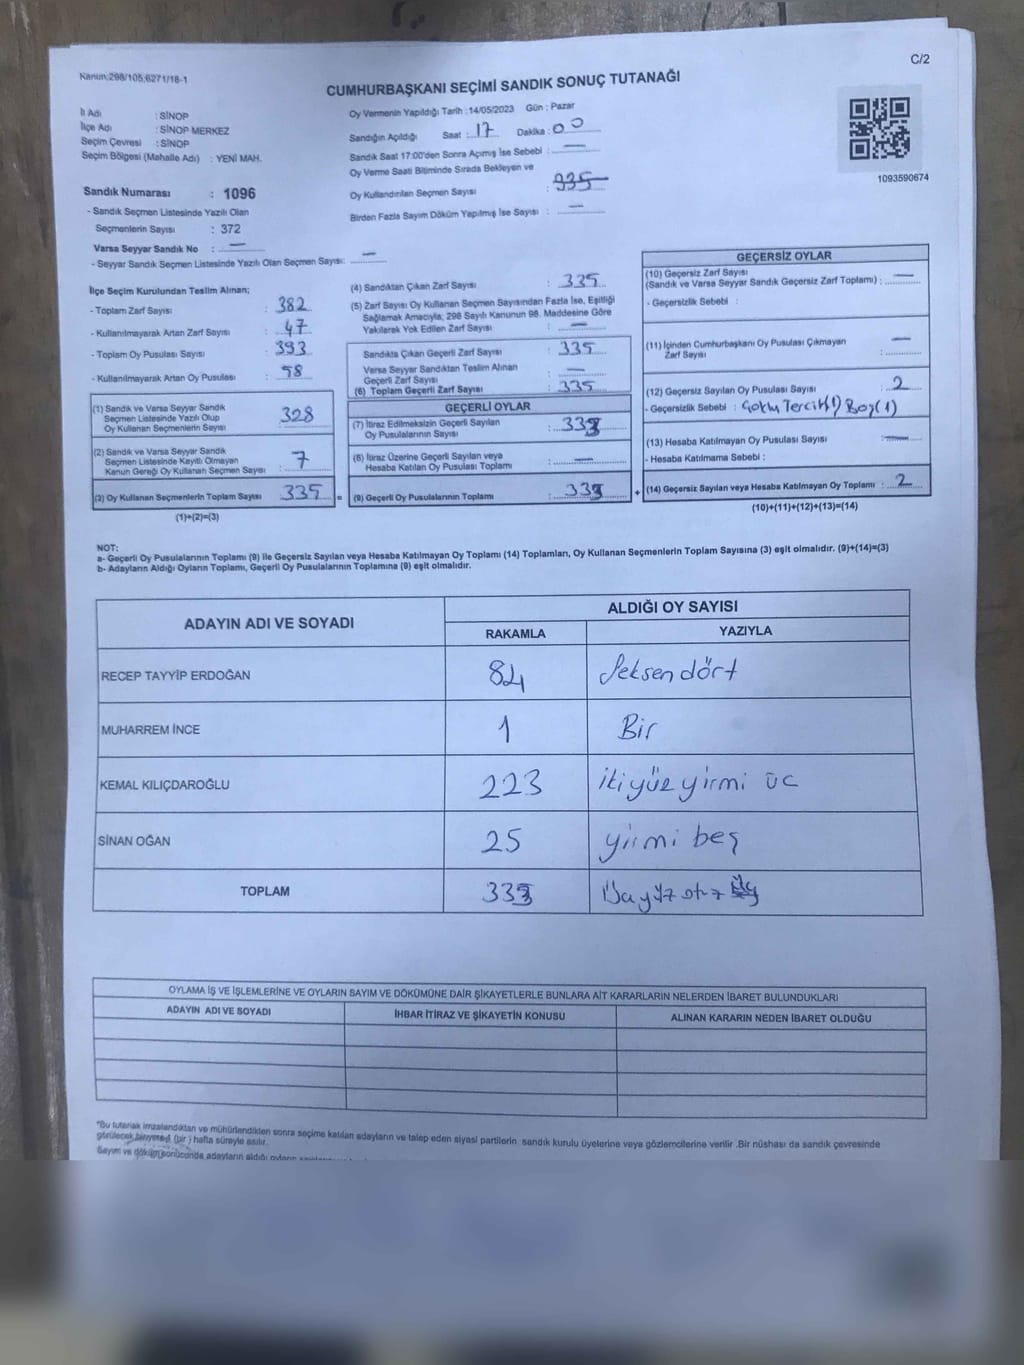 Kanun;298/105,6271/18-1
C/2
CUMHURBAŞKANI SEÇİMİ SANDIK SONUÇ TUTANAĞI
İl Adı : SİNOP
İlçe Adı : SİNOP MERKEZ
Seçim Çevresi : SİNOP
Seçim Bölgesi (Mahalle Adı) : YENİ MAH.
Sandık Numarası : 1096
- Sandık Seçmen Listesinde Yazılı Olan
Seçmenlerin Sayısı : 372
Varsa Seyyar Sandık No : —
- Seyyar Sandık Seçmen Listesinde Yazılı Olan Seçmen Sayısı: —
Oy Vermenin Yapıldığı Tarih :14/05/2023 Gün : Pazar
Sandığın Açıldığı Saat : 17 Dakika : 00
Sandık Saat 17:00'den Sonra Açımış İse Sebebi : —
Oy Verme Saati Bitiminde Sırada Bekleyen ve
Oy Kullandırılan Seçmen Sayısı : 335
Birden Fazla Sayım Döküm Yapılmış İse Sayısı : —
1093590674
İlçe Seçim Kurulundan Teslim Alınan;
- Toplam Zarf Sayısı : 382
- Kullanılmayarak Artan Zarf Sayısı : 47
- Toplam Oy Pusulası Sayısı : 393
- Kullanılmayarak Artan Oy Pusulası : 58
(1) Sandık ve Varsa Seyyar Sandık
Seçmen Listesinde Yazılı Olup
Oy Kullanan Seçmenlerin Sayısı : 328
(2) Sandık ve Varsa Seyyar Sandık
Seçmen Listesinde Kayıtlı Olmayan
Kanun Gereği Oy Kullanan Seçmen Sayısı : 7
(3) Oy Kullanan Seçmenlerin Toplam Sayısı : 335 =
(1)+(2)=(3)
(4) Sandıktan Çıkan Zarf Sayısı : 335
(5) Zarf Sayısı Oy Kullanan Seçmen Sayısından Fazla İse, Eşitliği
Sağlamak Amacıyla; 298 Sayılı Kanunun 98. Maddesine Göre
Yakılarak Yok Edilen Zarf Sayısı : —
Sandıkta Çıkan Geçerli Zarf Sayısı : 335
Varsa Seyyar Sandıktan Teslim Alınan
Geçerli Zarf Sayısı : —
(6) Toplam Geçerli Zarf Sayısı : 335
GEÇERLİ OYLAR
(7) İtiraz Edilmeksizin Geçerli Sayılan
Oy Pusulalarının Sayısı : 333
(8) İtiraz Üzerine Geçerli Sayılan veya
Hesaba Katılan Oy Pusulası Toplamı : —
(9) Geçerli Oy Pusulalarının Toplamı : 333 +
GEÇERSİZ OYLAR
(10) Geçersiz Zarf Sayısı
(Sandık ve Varsa Seyyar Sandık Geçersiz Zarf Toplamı) : —
- Geçersizlik Sebebi :
(11) İçinden Cumhurbaşkanı Oy Pusulası Çıkmayan
Zarf Sayısı : —
(12) Geçersiz Sayılan Oy Pusulası Sayısı : 2
- Geçersizlik Sebebi : Çoklu Tercih(1) Boş(1)
(13) Hesaba Katılmayan Oy Pusulası Sayısı : —
- Hesaba Katılmama Sebebi :
(14) Geçersiz Sayılan veya Hesaba Katılmayan Oy Toplamı : 2
(10)+(11)+(12)+(13)=(14)
NOT:
a- Geçerli Oy Pusulalarının Toplamı (9) ile Geçersiz Sayılan veya Hesaba Katılmayan Oy Toplamı (14) Toplamları, Oy Kullanan Seçmenlerin Toplam Sayısına (3) eşit olmalıdır. (9)+(14)=(3)
b- Adayların Aldığı Oyların Toplamı, Geçerli Oy Pusulalarının Toplamına (9) eşit olmalıdır.
ADAYIN ADI VE SOYADI ALDIĞI OY SAYISI
RAKAMLA YAZIYLA
RECEP TAYYİP ERDOĞAN 84 Seksen dört
MUHARREM İNCE 1 Bir
KEMAL KILIÇDAROĞLU 223 ikiyüz yirmi üc
SİNAN OĞAN 25 yirmi beş
TOPLAM 333 üç
OYLAMA İŞ VE İŞLEMLERİNE VE OYLARIN SAYIM VE DÖKÜMÜNE DAİR ŞİKAYETLERLE BUNLARA AİT KARARLARIN NELERDEN İBARET BULUNDUKLARI
ADAYIN ADI VE SOYADI İHBAR İTİRAZ VE ŞİKAYETİN KONUSU ALINAN KARARIN NEDEN İBARET OLDUĞU
*Bu tutanak imzalandıktan ve mühürlendikten sonra seçime katılan adayların ve talep eden siyasi partilerin sandık kurulu üyelerine veya gözlemcilerine verilir .Bir nüshası da sandık çevresinde
görülecek (bir ) hafta süreyle asılır.
Sayım ve döküm sonucunda adayların aldığı oyların